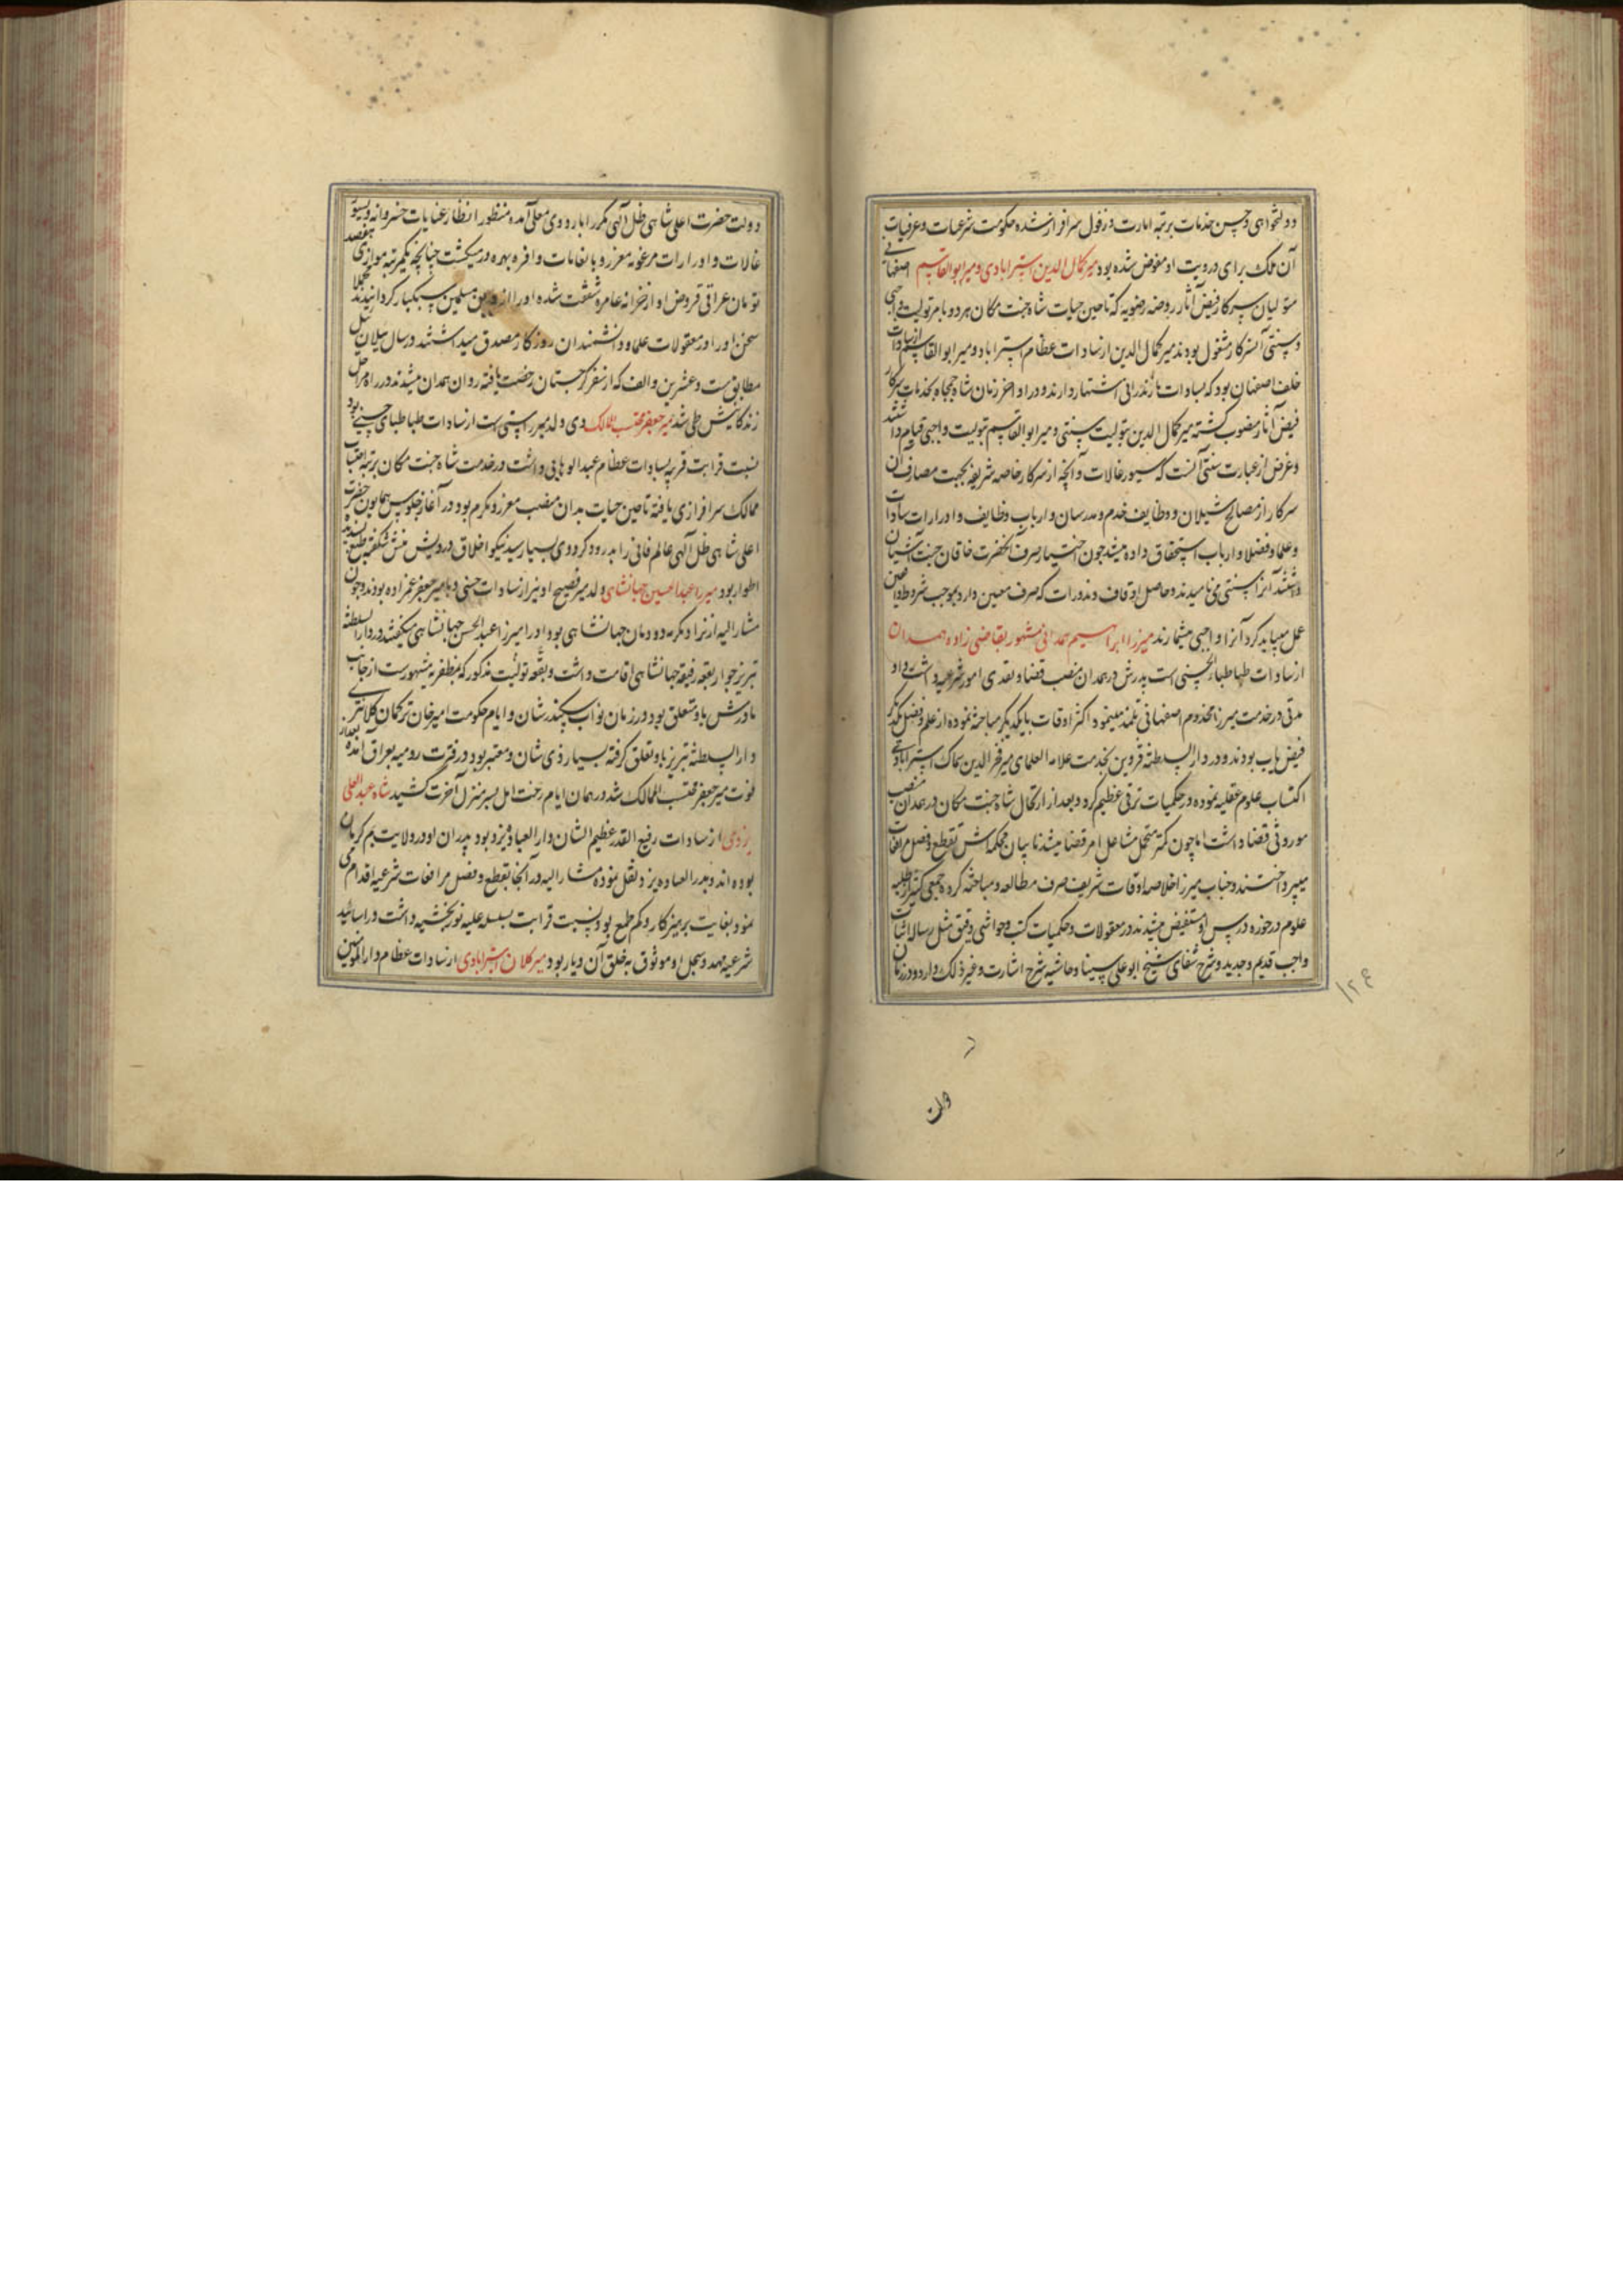 دولتخواهی و حسن خدمات برتبه امارت دزفول سرافراز شده حکومت شرعیات و عرفیات
آن ملک برای و رویت او مفوض شده بود میر کمال الدین استرابادی و میر ابوالقاسم اصفهانی
متولیان سرکار فیض آثار روضه رضویه که تا حین حیات شاه جنت مکان هر دو بامر تولیت واجبی
و سنتی آنسرکار مشغول بودند میر کمال الدین از سادات عظام استراباد و میر ابوالقاسم از سادات
خلف اصفهان بود که بسادات مازندرانی اشتهار دارند و در اواخر زمان شاه جمجاه بخدمات سرکار
فیض آثار منصوب گشته میر کمال الدین بتولیت سنتی و میر ابوالقاسم بتولیت واجبی قیام داشتند
و غرض از عبارت سنتی آنست که سیورغالات و آنچه از سرکار خاصه شریفه بجهت مصارف آن
سرکار از مصالح شیلان و وظایف خدم و مدرسان و ارباب وظایف و ادرارات سادات
و علما و فضلا و ارباب استحقاق داده میشد چون اختیار صرف آنحضرت خاقان جنت آشیان
داشتند آنرا سنتی می نامیدند و حاصل اوقاف و نذورات که صرف معین دارد بموجب شروط واقفین
عمل میباید کرد آنرا واجبی میشمارند میرزا ابراهیم همدانی مشهور بقاضی زاده همدان
از سادات طباطبا الحسنی است پدرش در همدان منصب قضا و تصدی امور شرعیه داشت و او
مدتی در خدمت میرزا مخدوم اصفهانی تلمذ مینمود و اکثر اوقات با یکدیگر مباحثه نموده از علم و فضل یکدیگر
فیض یاب بودند و در دار السلطنه قزوین بخدمت علامه العلمای میر فخر الدین سماک استرابادی
اکتساب علوم عقلیه نموده در حکمیات ترقی عظیم کرد و بعد از ارتحال شاه جنت مکان در همدان منصب
موروثی قضا داشت اما چون کمتر متحمل مشاغل امر قضا میشد نایبان محکمه اش بقطع و فصل مرافعات
میپرداختند و جناب میرزا خلاصه اوقات شریف صرف مطالعه و مباحثه کرده جمعی کثیر از طلبه
علوم در حوزه درس او مستفیض میشدند در معقولات و حکمیات کتب و حواشی دقیق مثل رساله اثبات
واجب قدیم و جدید و شرح شفای شیخ ابو علی سینا و حاشیه شرح اشارت و غیر ذلک دارد و در زمان
۱۲۴
دولت
دولت حضرت اعلی شاهی ظل آلهی مکرر اباردوی معلی آمده منظور انظار عنایات خسروانه و بسیور
غالات و ادرارات مرغوبه معزز و بانعامات وافره بهره ور میکشت چنانچه یکمرتبه موازی هفتصد
تومان عراقی قروض او از خزانه عامره شفقت شده او را از دین مسلمین سبکبار کردانیدند
سخن او را در معقولات علما و دانشمندان روزکار مصدق میداشتند در سال ییلان ییل
مطابق ست و عشرین و الف که از سفر کرجستان رخصت یافته روان همدان میشدند در راه مراحل
زندکانیش طی شد میر جعفر محتسب الممالک وی ولد میر راستی است از سادات طباطبای حسنی بود
نسبت قرابت قریبه بسادات عظام عبدالوهابی داشت در خدمت شاه جنت مکان برتبه احتساب
ممالک سرافرازی یافته تا حین حیات بدان منصب معزز و مکرم بود در آغاز جلوس همایون حضرت
اعلی شاهی ظل آلهی عالم فانی را بدرود کرد وی بسیار سید نیکو اخلاق درویش منش شکفته طبع پسندیده
اطوار بود میرزا عبدالحسین جهانشاهی ولد میر فصیح او نیز از سادات حسنی و با میر جعفر عم زاده بودند و چون
مشار الیه از نژاد مکرمه دودمان جهانشاهی بود او را میرزا عبد الحسین جهانشاهی میکفتند در دار السلطنه
تبریز جوار بقعه رفیعه جهانشاهی اقامت داشت و بقعه تولیت مذکور که بمظفریه مشهور ست از جانب
مادرش باو متعلق بود در زمان نواب سکندر شان و ایام حکومت امیر خان ترکمان کلانتری
دار السلطنه تبریز باو تعلق کرفته بسیار ذی شان و معتبر بود در فترت رومیه بعراق آمده بعد از
فوت میر جعفر محتسب الممالک شد در همان ایام رخت امل بسر منزل آخرت کشید شاه عبدالعلی
یزدی از سادات رفیع القدر عظیم الشان دار العباد یزد بود پدران او در ولایت بم کرمان
بوده اند و بدار العباده یزد نقل نموده مشار الیه در آنجا بقطع و فصل مرافعات شرعیه اقدام می
نمود بغایت پرهیزکار و کم طمع بود و نسبت قرابت بسلسله علیه نوربخشیه داشت و در اسانید
شرعیه عهد و سجل او موثوق به خلق آن دیار بود میر کلان استرابادی از سادات عظام دار المومنین